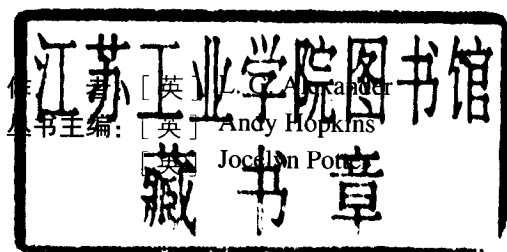 江苏工业学院图书馆
藏书章
作 者：[英] L. G. Alexander
丛书主编：[英] Andy Hopkins
[英] Jocelyn Potter